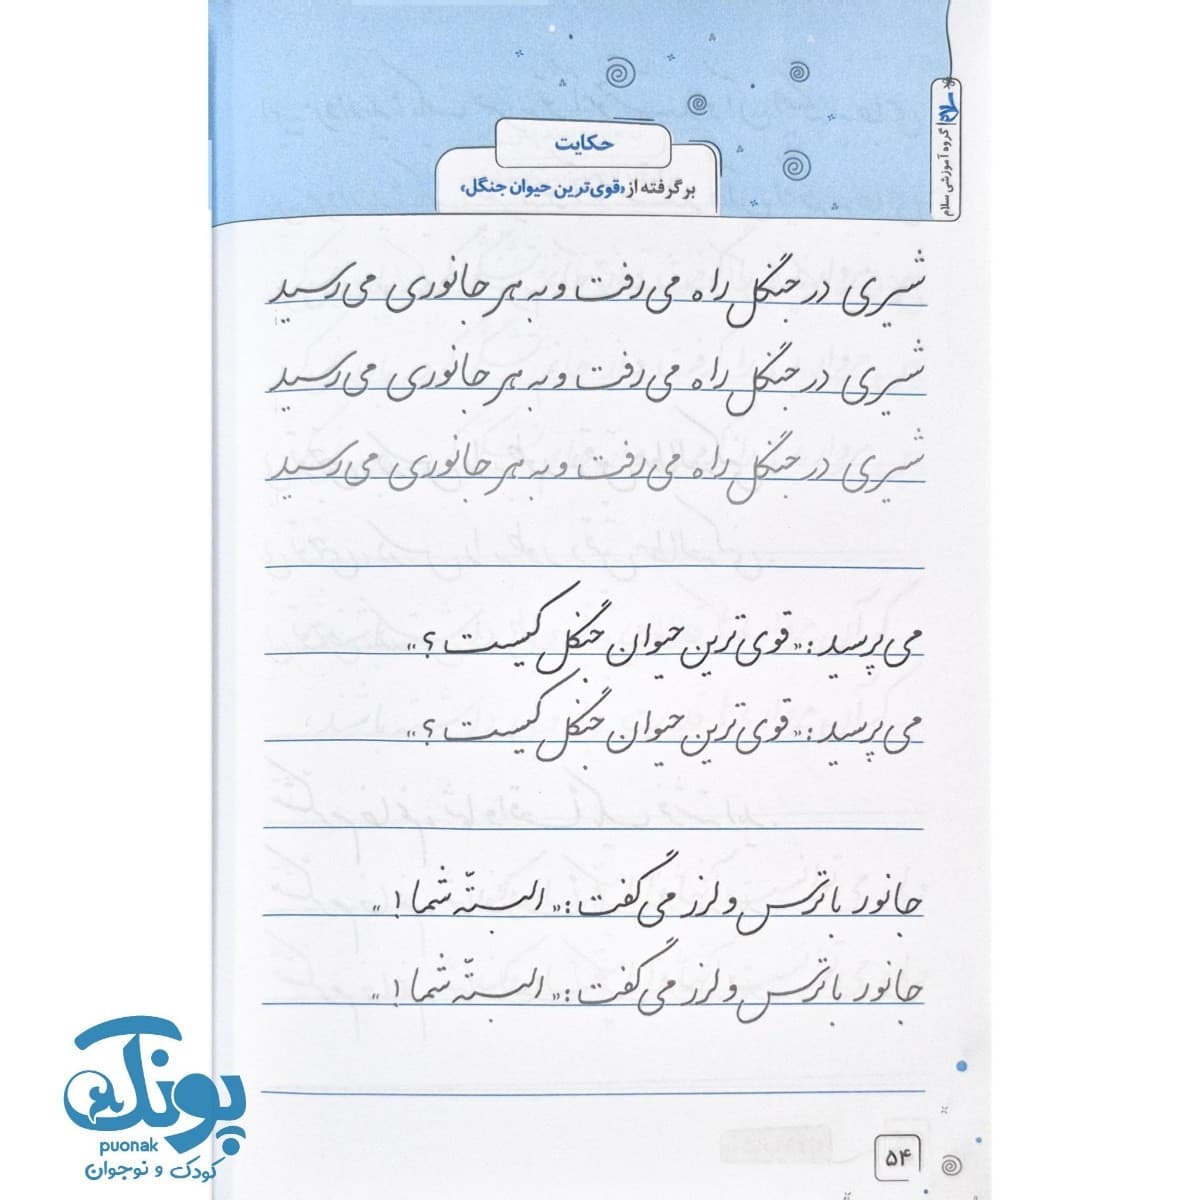 سلام
گروه آموزشی سلام
حکایت
برگرفته از «قوی‌ترین حیوان جنگل»
شیری در جنگل راه می‌رفت و به هر جانوری می‌رسید
شیری در جنگل راه می‌رفت و به هر جانوری می‌رسید
شیری در جنگل راه می‌رفت و به هر جانوری می‌رسید
می‌پرسید: «قوی‌ترین حیوان جنگل کیست؟»
می‌پرسید: «قوی‌ترین حیوان جنگل کیست؟»
جانور با ترس و لرز می‌گفت: «البتّه شما!»
جانور با ترس و لرز می‌گفت: «البتّه شما!»
۵۴
پونک
puonak
کودک و نوجوان